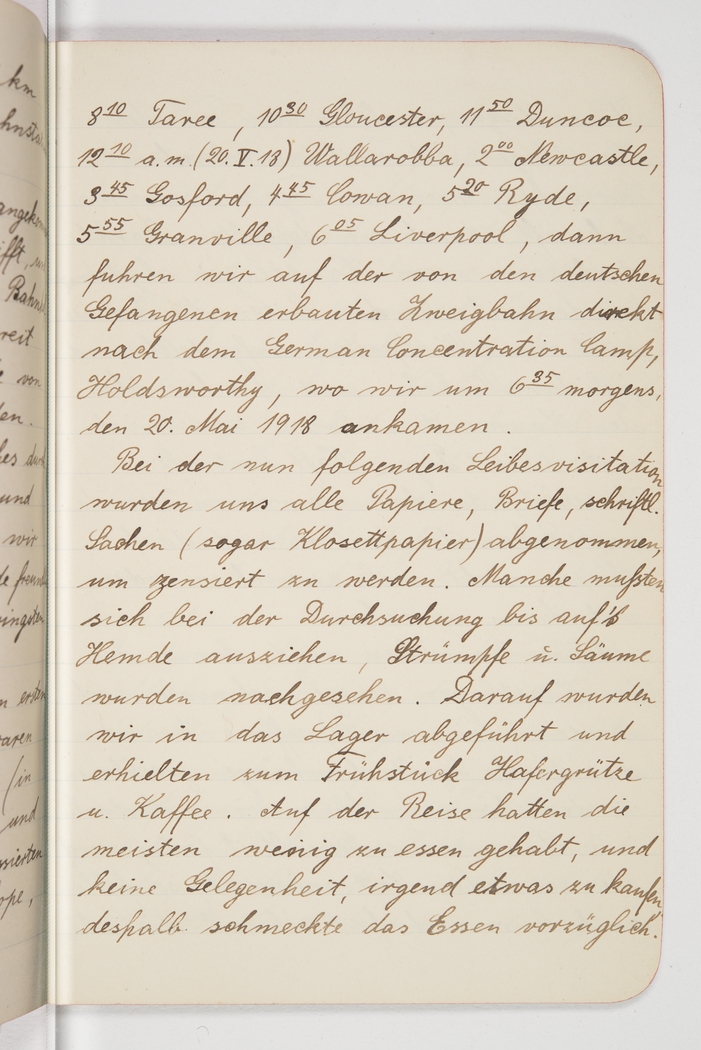 km
8 10 Taree, 10 30 Gloucester, 11 50 Duncoc,
12 10 a.m. (20. V. 18) Wallarobba, 2 00 Newcastle,
3 45 Gosford, 4 45 Cowan, 5 20 Ryde,
5 55 Granville, 6 05 Liverpool, dann
fuhren wir auf der von den deutschen
Gefangenen erbauten Zweigbahn direkt
nach dem German Concentration Camp,
Holdsworthy, wo wir um 6 35 morgens,
den 20. Mai 1918 ankamen.
Bei der nun folgenden Leibesvisitation
wurden uns alle Papiere, Briefe, schriftl.
Sachen (sogar Klosettpapier) abgenommen,
um zensiert zu werden. Manche mußten
sich bei der Durchsuchung bis auf's
Hemde ausziehen, Strümpfe u. Säume
wurden nachgesehen. Darauf wurden
wir in das Lager abgeführt und
erhielten zum Frühstück Hafergrütze
u. Kaffee. Auf der Reise hatten die
meisten wenig zu essen gehabt, und
keine Gelegenheit, irgend etwas zu kaufen,
deshalb schmeckte das Essen vorzüglich.